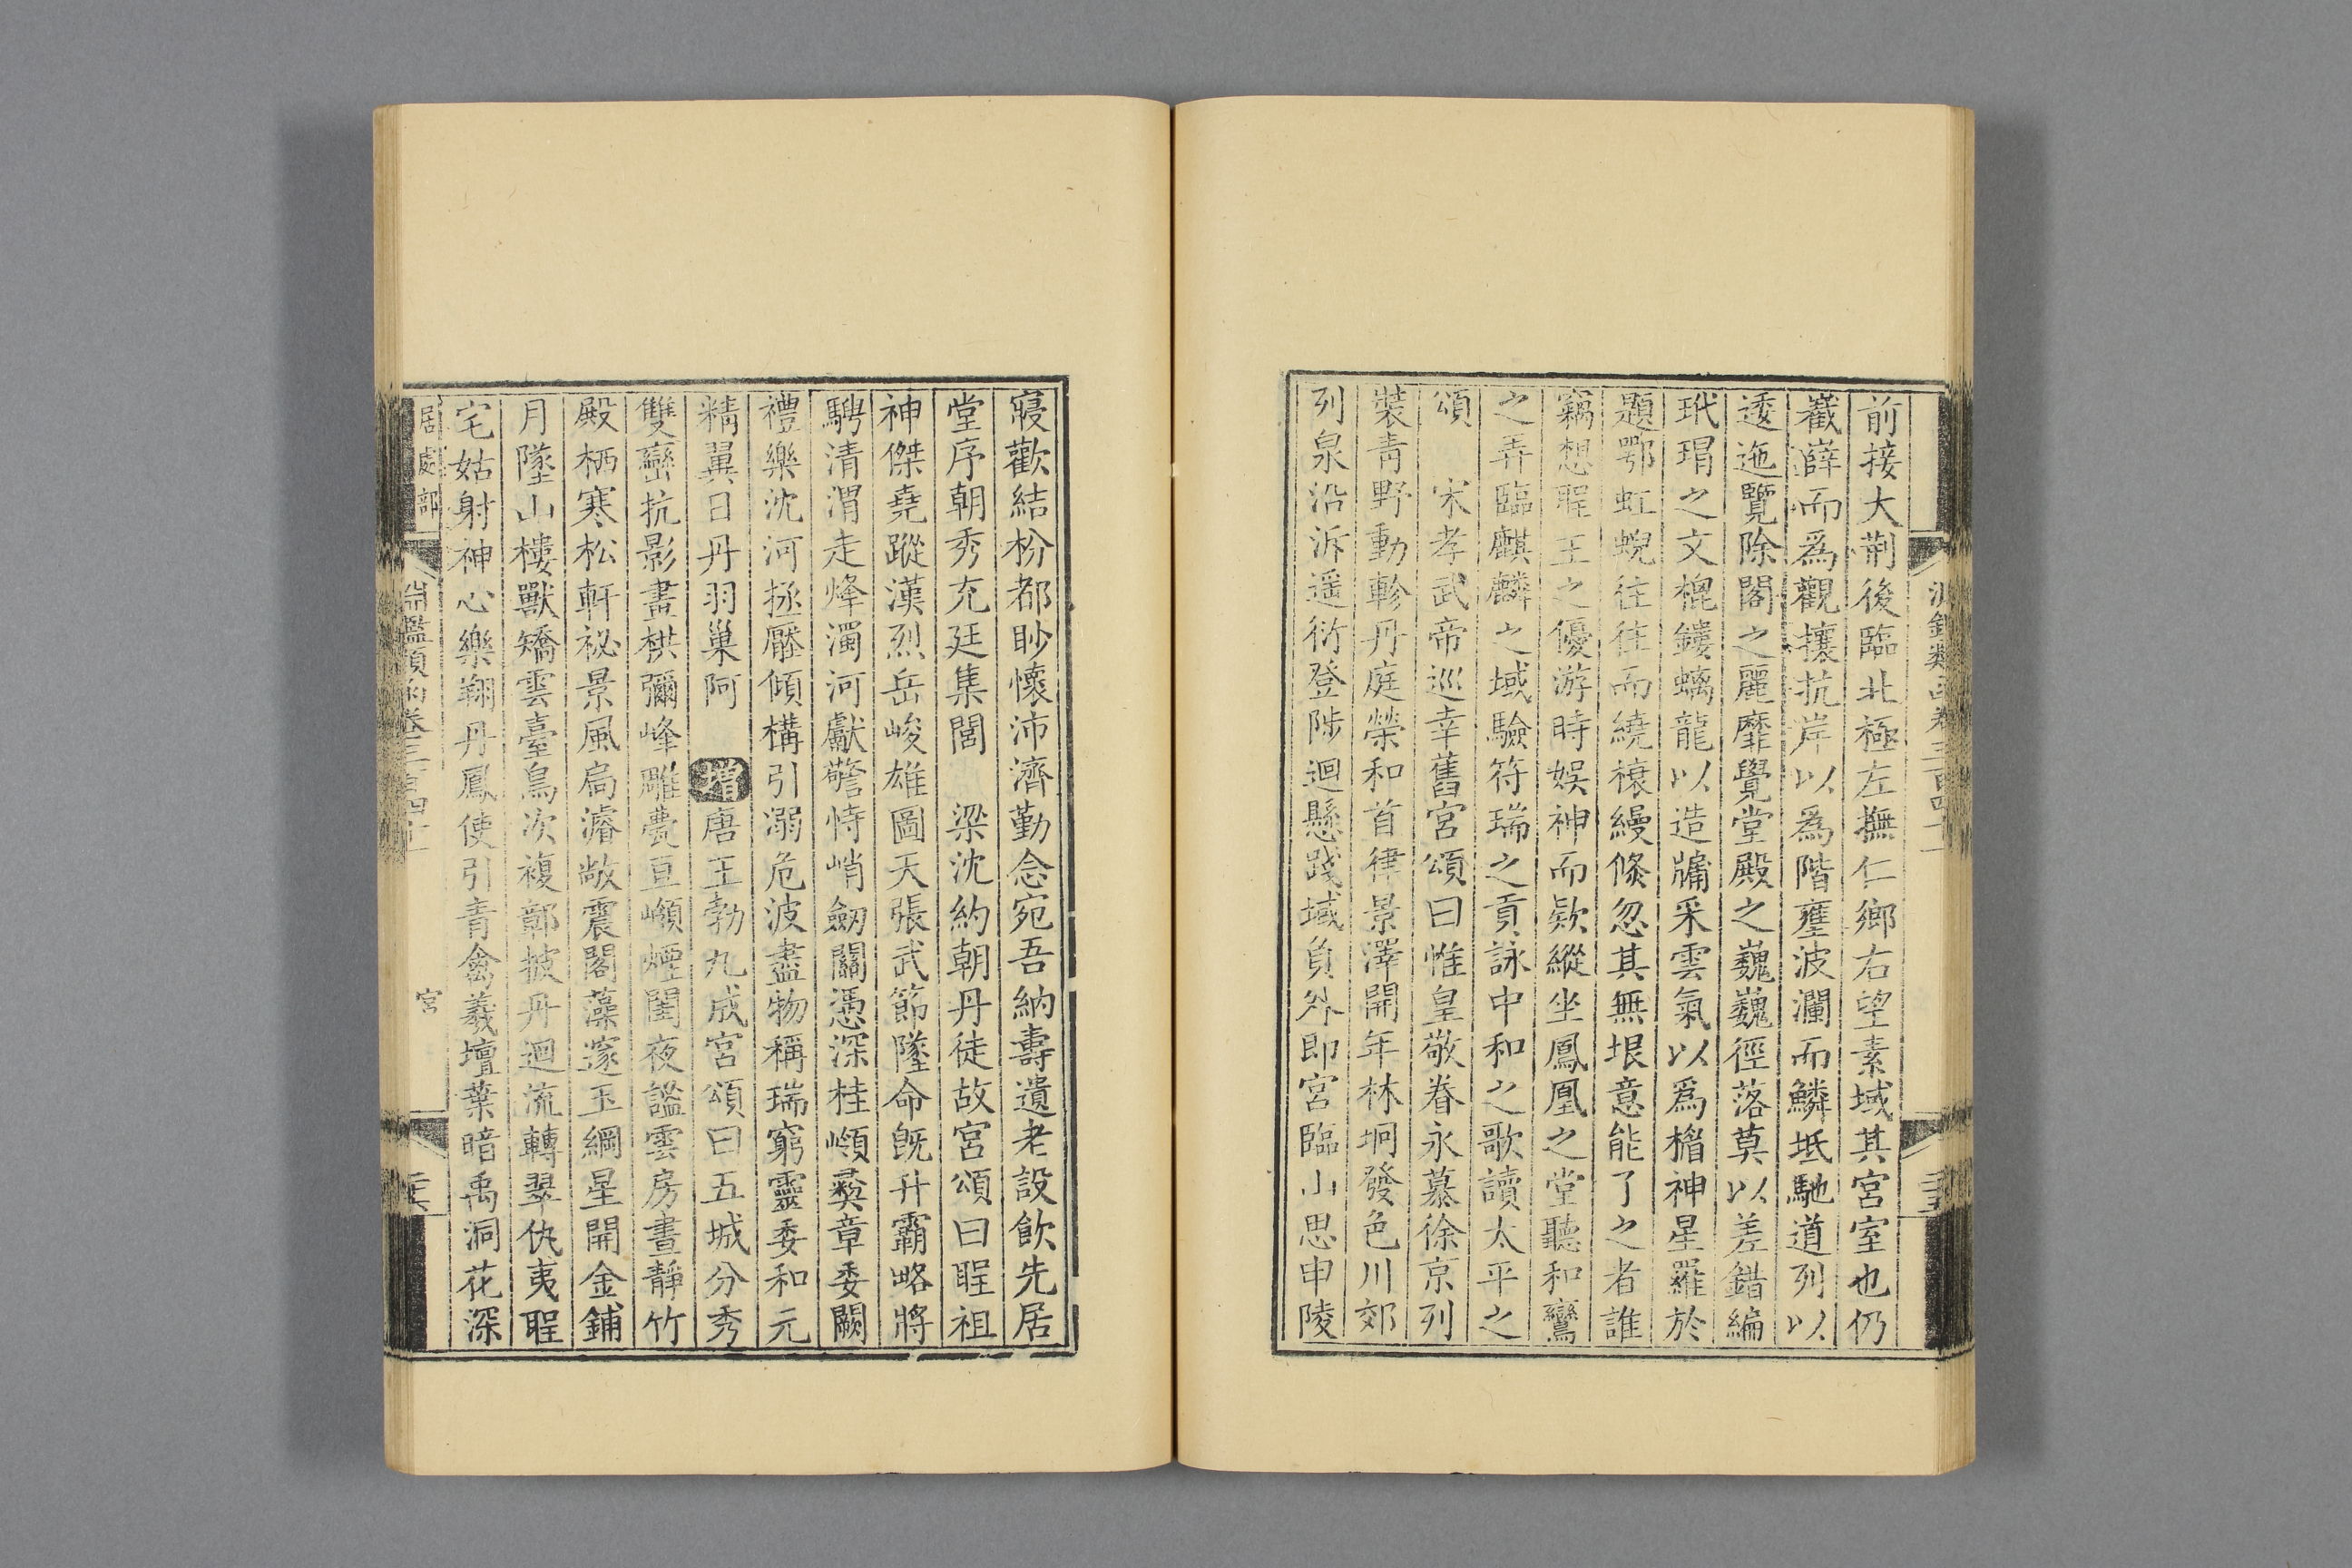 前接大荆後臨北極左撫仁鄉右望素域其宮室也仍
嶻嶭而為觀攘抗岸以為階壅波瀾而鱗坻馳道列以
逶迤覽除閣之麗靡覺堂殿之巍巍徑落莫以差錯編
玳瑁之文榥鏤螭龍以造牖采雲氣以為楣神星羅於
題鄂虹蜺往往而繞榱縵倏忽其無垠意能了之者誰
竊想聖王之優游時娛神而款縱坐鳳凰之堂聽和鸞
之弄臨麒麟之域驗符瑞之貢詠中和之歌讀太平之
頌　宋孝武帝巡幸舊宮頌曰惟皇敬眷永慕徐京列
裝青野動軫丹庭榮和首律景澤開年林坰發色川郊
列泉沿泝遥衍登陟迴懸踐域負外即宮臨山思申陵
寢歡結枌都眇懷沛濟勤念宛吾納壽遺老設飲先居
堂序朝秀充廷集閭　梁沈約朝丹徒故宮頌曰聖祖
神傑堯蹤漢烈岳峻雄圖天張武節墜命旣升霸略將
騁清渭走烽濁河獻警恃峭劒關憑深桂嶺彝章委闕
禮樂沈河拯壓傾構引溺危波盡物稱瑞窮靈委和元
精翼日丹羽巢阿　增唐王勃九成宮頌曰五城分秀
雙巒抗影畫栱彌峰雕甍亘嶺煙閨夜謐雲房晝靜竹
殿栖寒松軒祕景風扃濬敞震閣藻邃玉綱星開金鋪
月墜山樓獸矯雲臺鳥次複郭披丹迴流轉翠仇夷聖
宅姑射神心樂翔丹鳳使引青禽羲壇葉暗禹洞花深
居處部
淵鑑類函卷三百四十一
宮